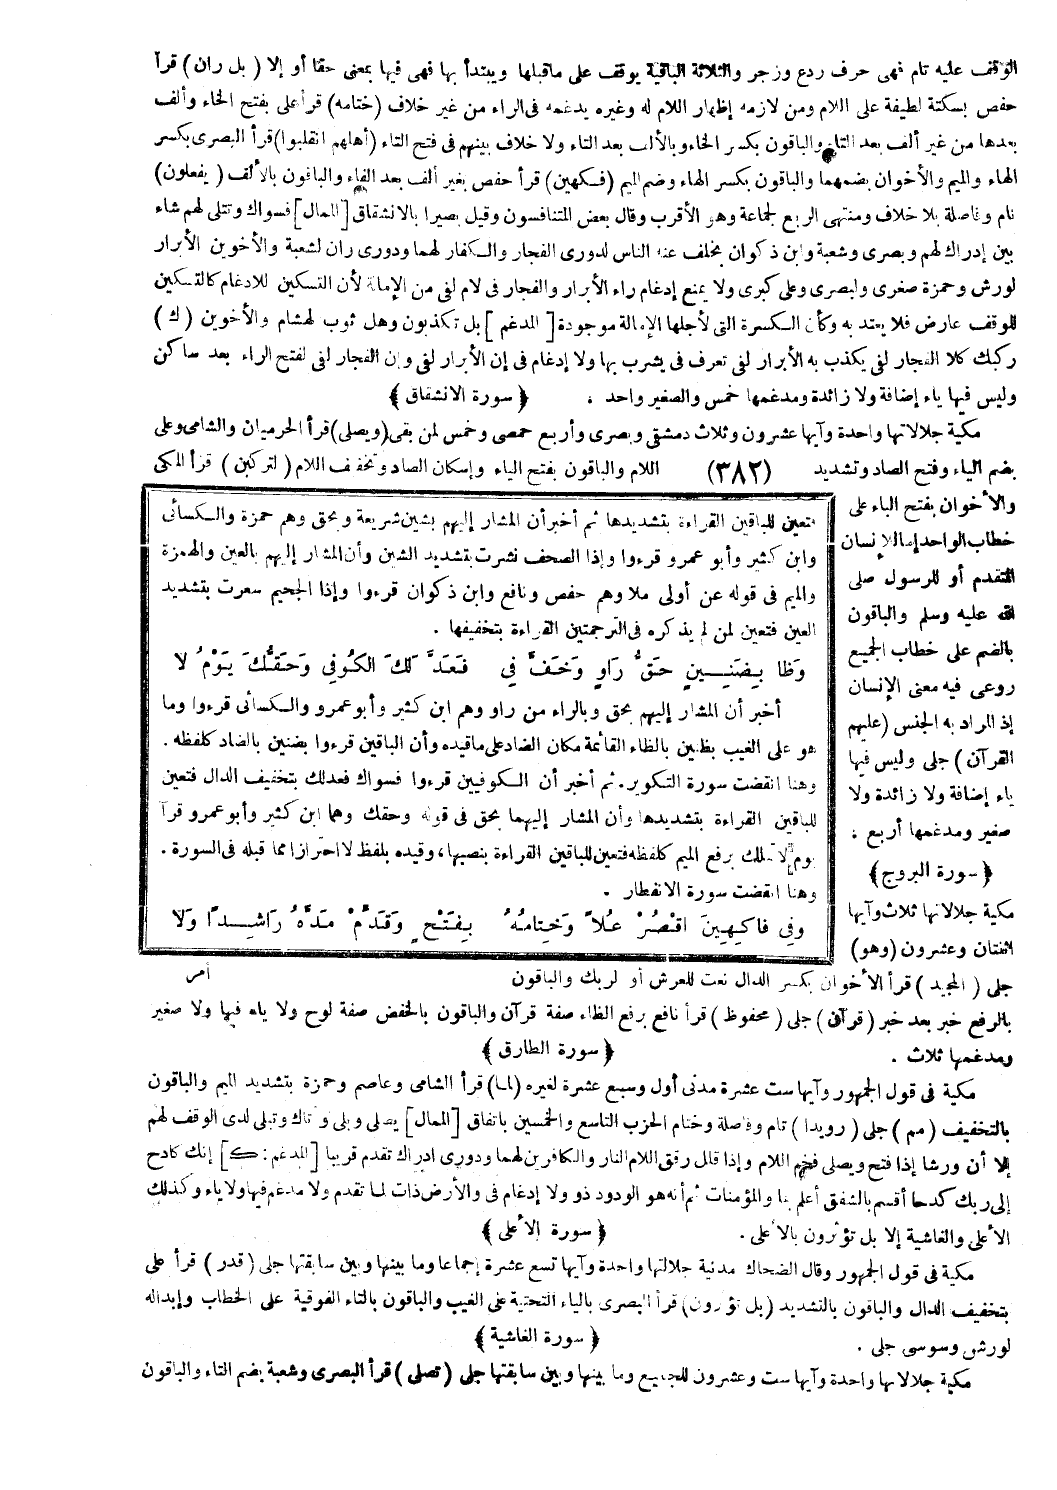 الوقف عليه تام فهى حرف ردع وزجر والثلاثة الباقية يوقف على ماقبلها ويبتدأ بها فهى فيها بمعنى حقا أو إلا (بل ران) قرأ
حفص بسكتة لطيفة على اللام ومن لازمه إظهار اللام له وغيره يدغمه فى الراء من غير خلاف (ختامه) قرأ على بفتح الخاء وألف
بعدها من غير ألف بعد التاء والباقون بكسر الخاء وبالألف بعد التاء ولا خلاف بينهم فى فتح التاء (أهلهم انقلبوا) قرأ البصرى بكسر
الهاء والميم والأخوان بضمهما والباقون بكسر الهاء وضم الميم (فكهين) قرأ حفص بغير ألف بعد الفاء والباقون بالألف (يفعلون)
تام وفاصلة بلا خلاف ومنتهى الربع لجماعة وهو الأقرب وقال بعض المتنافسون وقيل بصيرا بالانشقاق [الممال] فسواك وتتلى لهم شاء
بين إدراك لهم وبصرى وشعبة وابن ذكوان بخلف عنه الناس لدورى الفجار والكفار لهما ودورى ران لشعبة والأخوين الأبرار
لورش وحمزة صغرى ولبصرى وعلى كبرى ولا يمنع إدغام راء الأبرار والفجار فى لام لفى من الإمالة لأن التسكين للادغام كالتسكين
للوقف عارض فلا يعتد به وكأن الكسرة التى لأجلها الإمالة موجودة [المدغم] بل تكذبون وهل ثوب لهشام والأخوين (ك)
ركبك كلا الفجار لفى يكذب به الأبرار لفى تعرف فى يشرب بها ولا إدغام فى إن الأبرار لفى وإن الفجار لفى لفتح الراء بعد ساكن
وليس فيها ياء إضافة ولا زائدة ومدغمها خمس والصغير واحد . ﴿ سورة الانشقاق ﴾
مكية جلالاتها واحدة وآيها عشرون وثلاث دمشقى وبصرى وأربع حمصى وخمس لمن بقى (ويصلى) قرأ الحرميان والشامى وعلى
بضم الياء وفتح الصاد وتشديد (٣٨٢) اللام والباقون بفتح الياء وإسكان الصاد وتخفيف اللام (لتركبن) قرأ المكى
والأخوان بفتح الباء على
خطاب الواحد إما للإنسان
المتقدم أو للرسول صلى
الله عليه وسلم والباقون
بالضم على خطاب الجميع
روعى فيه معنى الإنسان
إذ المراد به الجنس (عليهم
القرآن) جلى وليس فيها
ياء إضافة ولا زائدة ولا
صغير ومدغمها أربع .
﴿ سورة البروج ﴾
مكية جلالاتها ثلاث وآيها
اثنتان وعشرون (وهو)
فتعين للباقين القراءة بتشديدها ثم أخبر أن المشار إليهم بشين شريعة وبحق وهم حمزة والكسائى
وابن كثير وأبو عمرو قرءوا وإذا الصحف نشرت بتشديد الشين وأن المشار إليهم بالعين والهمزة
والميم فى قوله عن أولى ملا وهم حفص ونافع وابن ذكوان قرءوا وإذا الجحيم سعرت بتشديد
العين فتعين لمن لم يذكره فى الترجمتين القراءة بتخفيفها .
وَظَا بِضَنِينٍ حَقُّ رَاوٍ وَخَفَّ فِي فَعَدَّلَكَ الكُوفِي وَحَقُّكَ يَوْمُ لَا
أخبر أن المشار إليهم بحق وبالراء من راو وهم ابن كثير وأبو عمرو والكسائى قرءوا وما
هو على الغيب بظنين بالظاء القائمة مكان الضاد على ماقيده وأن الباقين قرءوا بضنين بالضاد كلفظه .
وهنا انقضت سورة التكوير. ثم أخبر أن الكوفيين قرءوا فسواك فعدلك بتخفيف الدال فتعين
للباقين القراءة بتشديدها وأن المشار إليهما بحق فى قوله وحقك وهما ابن كثير وأبو عمرو قرآ
يوم لا تملك برفع الميم كلفظه فتعين للباقين القراءة بنصبها، وقيده بلفظ لا احترازا مما قبله فى السورة .
وهنا انقضت سورة الانفطار .
وفِي فَاكِهِينَ اقْصُرْ عُلاً وَخِتَامُهُ بِفَتْحٍ وَقَدِّمْ مَدَّهُ رَاشِدًا وَلَا
جلى (المجيد) قرأ الأخوان بكسر الدال نعت للعرش أو لربك والباقون أمر
بالرفع خبر بعد خبر (قرآن) جلى (محفوظ) قرأ نافع برفع الظاء صفة قرآن والباقون بالخفض صفة لوح ولا ياء فيها ولا صغير
ومدغمها ثلاث . ﴿ سورة الطارق ﴾
مكية فى قول الجمهور وآيها ست عشرة مدنى أول وسبع عشرة لغيره (لما) قرأ الشامى وعاصم وحمزة بتشديد الميم والباقون
بالتخفيف (مم) جلى (رويدا) تام وفاصلة وختام الحزب التاسع والخمسين باتفاق [الممال] يصلى وبلى وأتاك وتبلى لدى الوقف لهم
إلا أن ورشا إذا فتح ويصلى فخم اللام وإذا قلل رقق اللام النار والكافرين لهما ودورى ادراك تقدم قريبا [المدغم: ك] إنك كادح
إلى ربك كدحا أقسم بالشفق أعلم بما والمؤمنات ثم أنه هو الودود ذو ولا إدغام فى والأرض ذات لما تقدم ولا مدغم فيها ولا ياء وكذلك
الأعلى والغاشية إلا بل تؤثرون بالأعلى . ﴿ سورة الأعلى ﴾
مكية فى قول الجمهور وقال الضحاك مدنية جلالتها واحدة وآيها تسع عشرة إجماعا وما بينها وبين سابقتها جلى (قدر) قرأ على
بتخفيف الدال والباقون بالتشديد (بل تؤثرون) قرأ البصرى بالياء التحتية على الغيب والباقون بالتاء الفوقية على الخطاب وإبداله
لورش وسوسى جلى . ﴿ سورة الغاشية ﴾
مكية جلالاتها واحدة وآيها ست وعشرون للجميع وما بينها وبين سابقتها جلى (تصلى) قرأ البصرى وشعبة بضم التاء والباقون